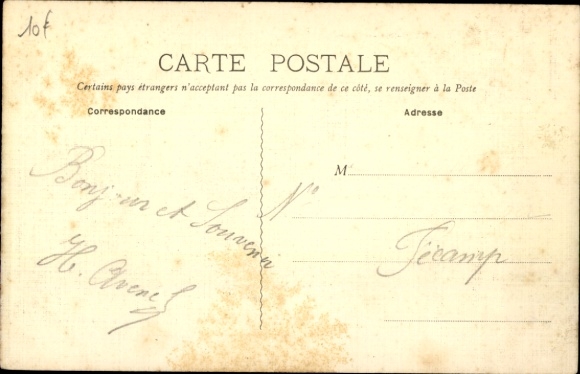 10f
CARTE POSTALE
Certains pays étrangers n'acceptent pas la correspondance de ce côté, se renseigner à la Poste
Correspondance
Bonjour et Souvenir
H. Avenel
Adresse
M
N°
Fécamp